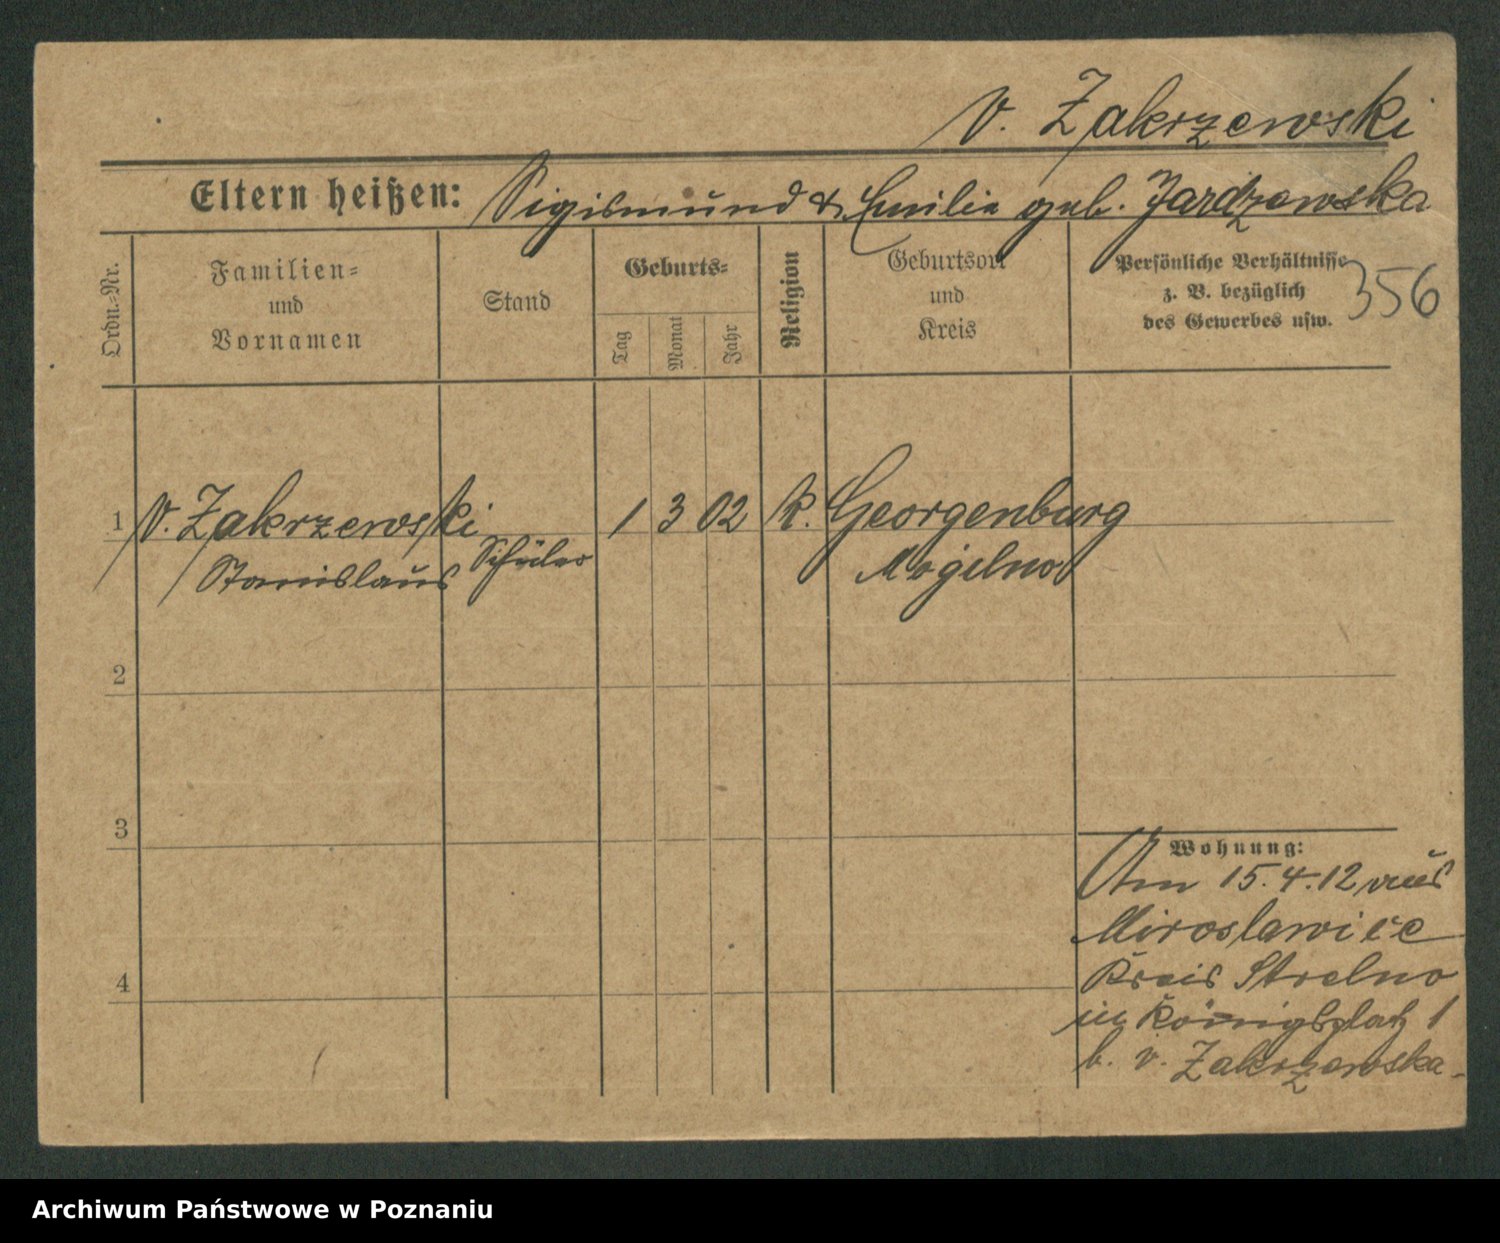 v. Zakrzewski
Eltern heißen: Sigismund & Emilie geb. Jardzewska
Ordn.-Nr.
Familien-
und
Vornamen
Stand
Geburts-
Tag
Monat
Jahr
Religion
Geburtsort
und
Kreis
Persönliche Verhältnisse
z. B. bezüglich
des Gewerbes usw.
356
1 v. Zakrzewski 1 3 02 k. Georgenburg
Stanislaus Schüler Mogilno
2
3
4
Wohnung:
Am 15.4.12 aus
Miroslawice
Kreis Strelno
in Königsplatz 1
b. v. Zakrzewska.
Archiwum Państwowe w Poznaniu